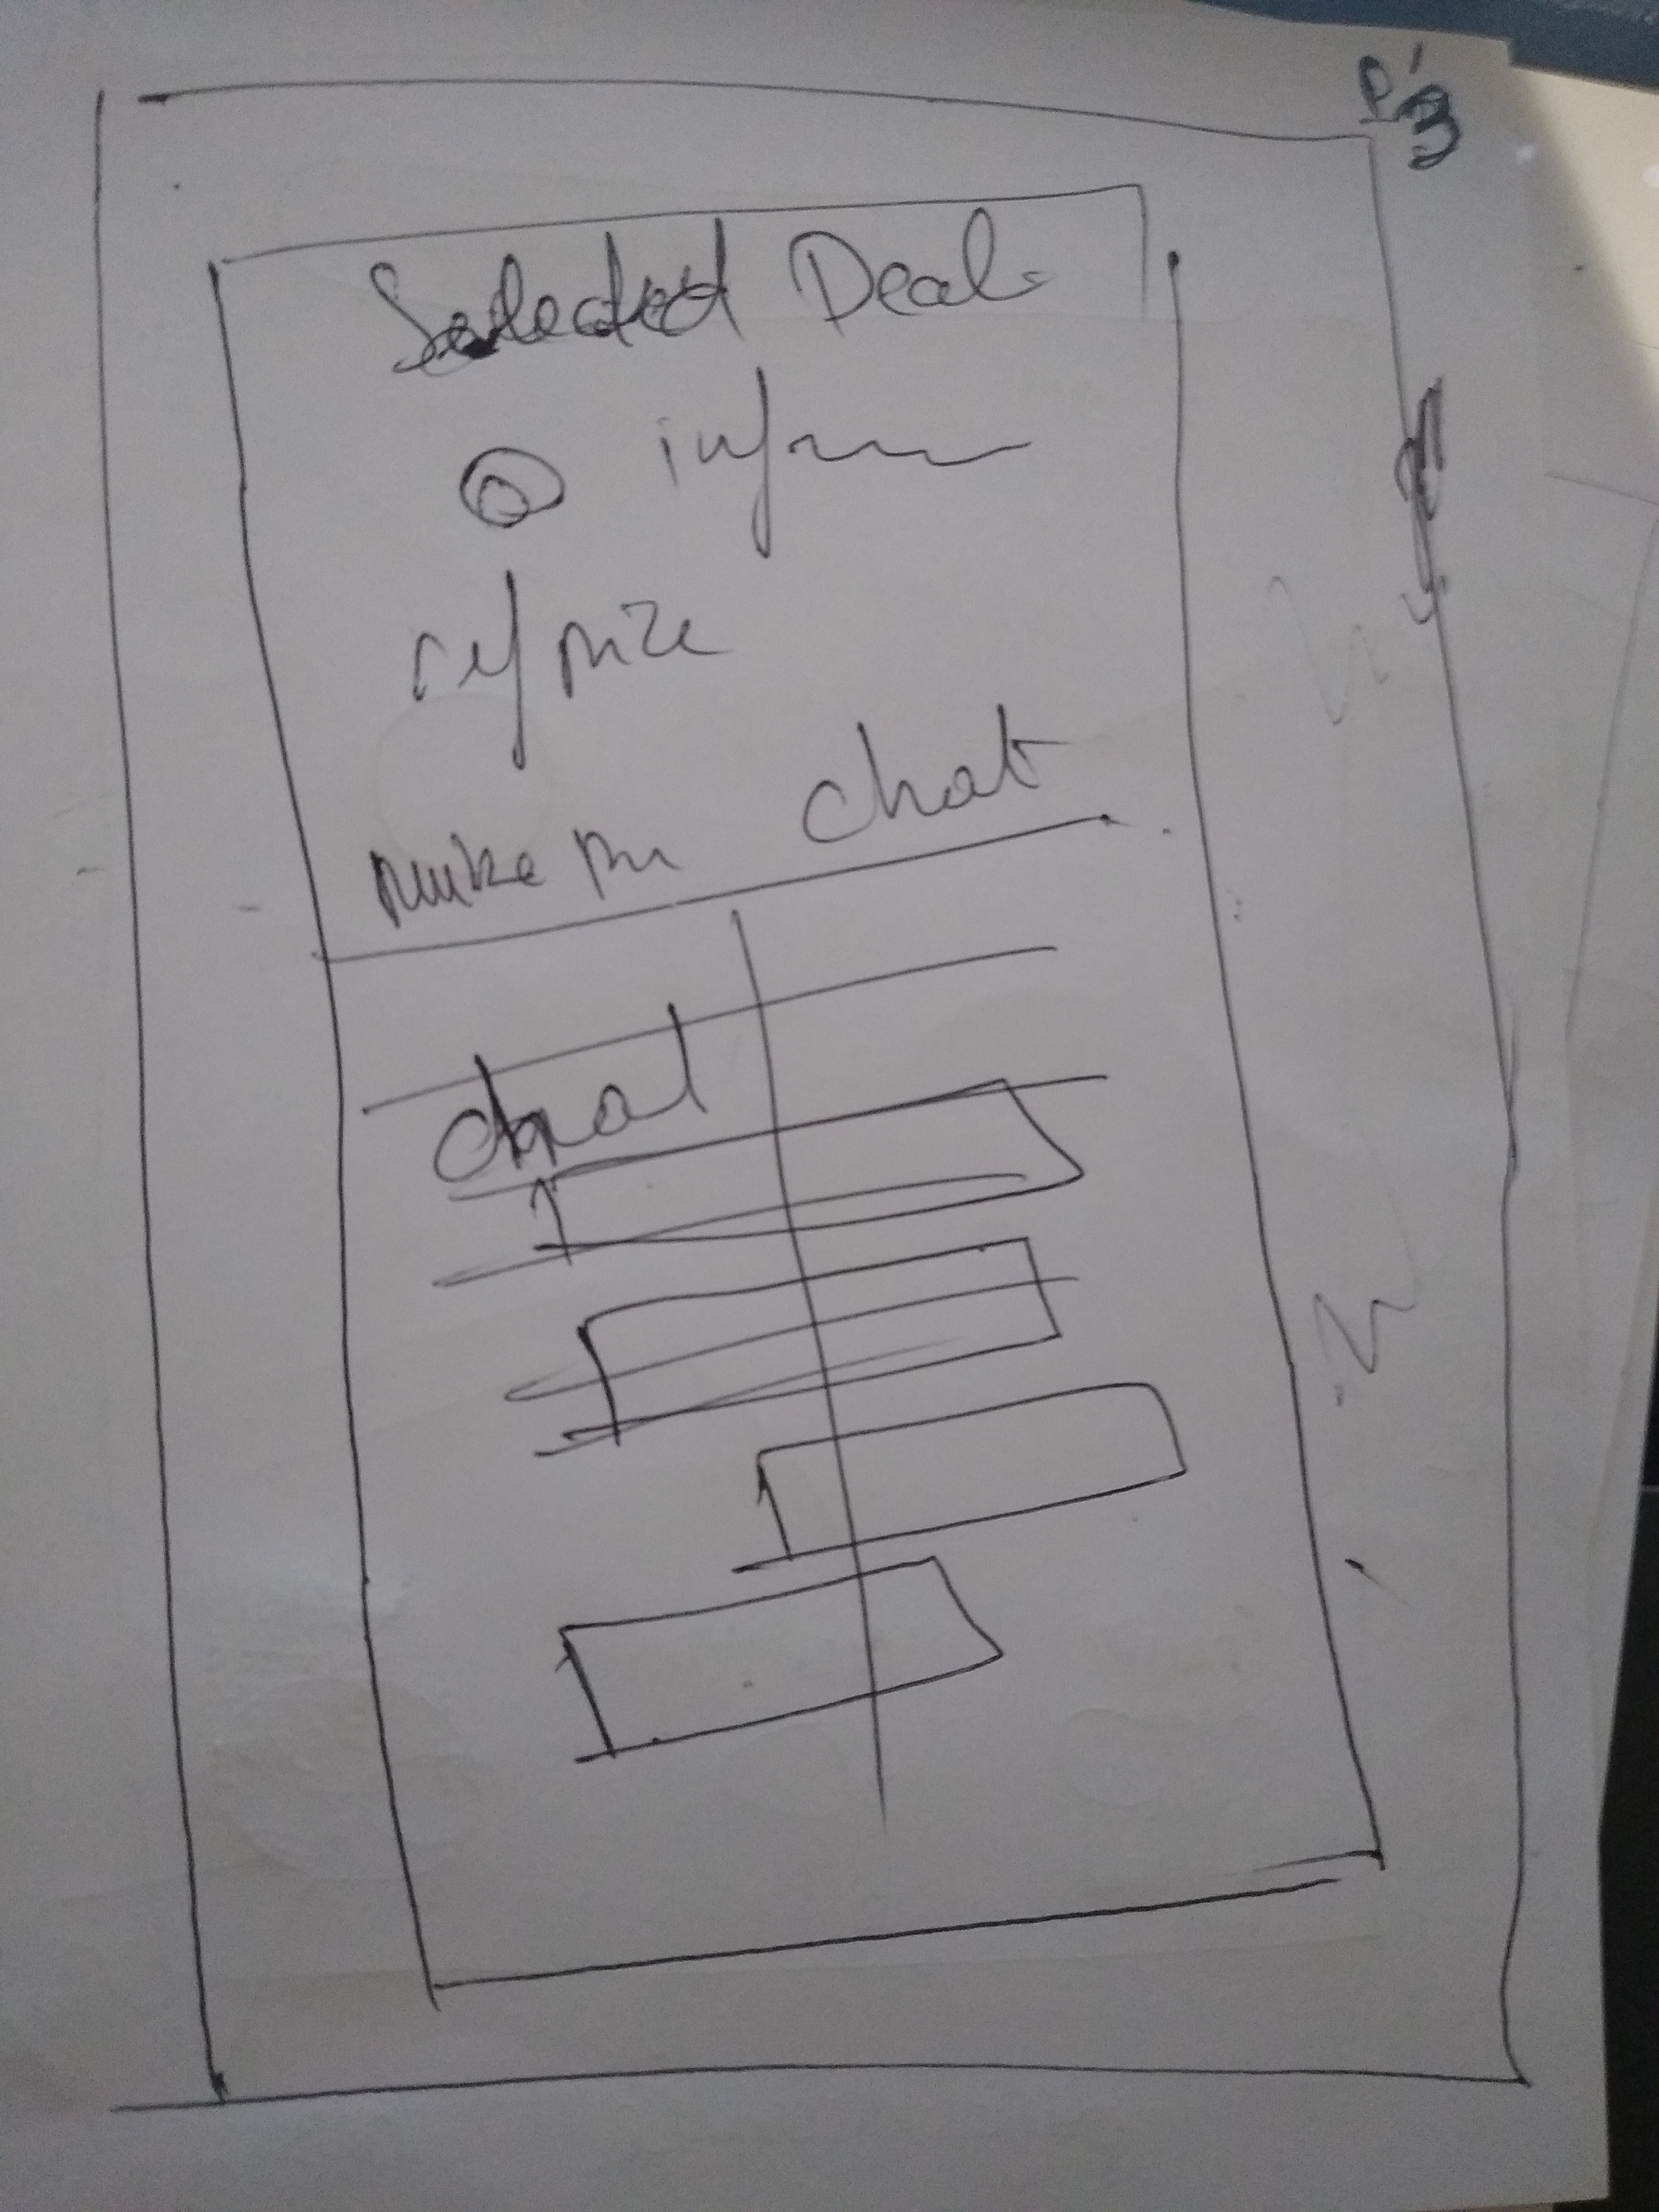 P'3
Selected Deal
info
ref prize
chat
chat